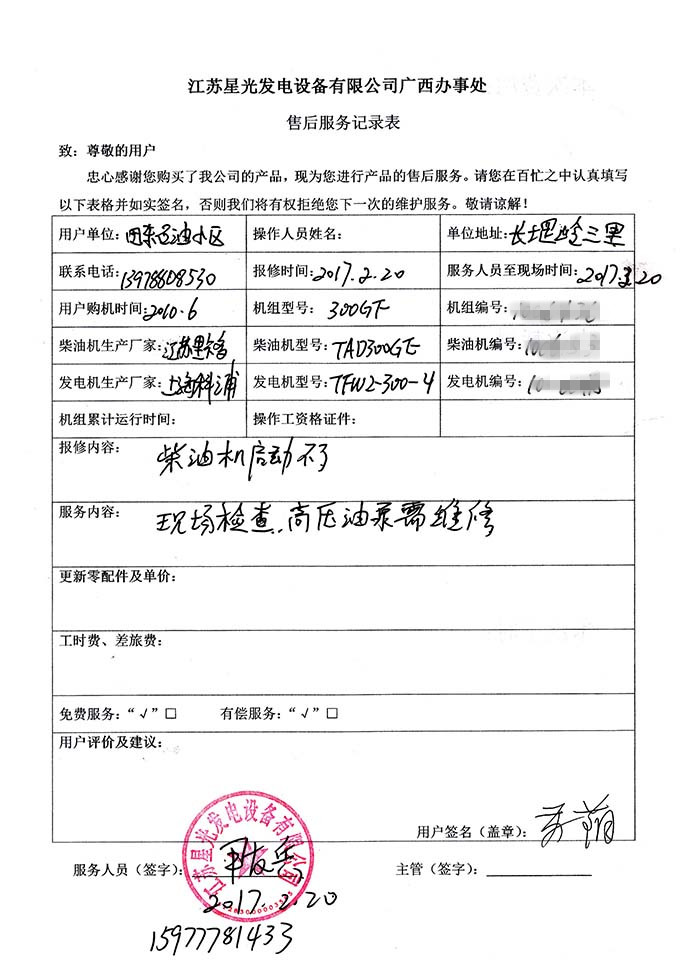 江苏星光发电设备有限公司广西办事处
售后服务记录表
致：尊敬的用户
忠心感谢您购买了我公司的产品，现为您进行产品的售后服务。请您在百忙之中认真填写
以下表格并如实签名，否则我们将有权拒绝您下一次的维护服务。敬请谅解！
用户单位：田东石油小区 操作人员姓名： 单位地址：长堽岭三里
联系电话：13978808530 报修时间：2017.2.20 服务人员至现场时间：2017.2.20
用户购机时间：2010.6 机组型号：300GF 机组编号：
柴油机生产厂家：江苏 柴油机型号：TAD300GE 柴油机编号：
发电机生产厂家：上海科浦 发电机型号：TFW2-300-4 发电机编号：
机组累计运行时间： 操作工资格证件：
报修内容：柴油机启动不了
服务内容：现场检查，高压油泵需维修
更新零配件及单价：
工时费、差旅费：
免费服务：“√”□ 有偿服务：“√”□
用户评价及建议：
用户签名（盖章）：
江苏星光发电设备有限公司
服务人员（签字）： 主管（签字）：
2017.2.20
15977781433